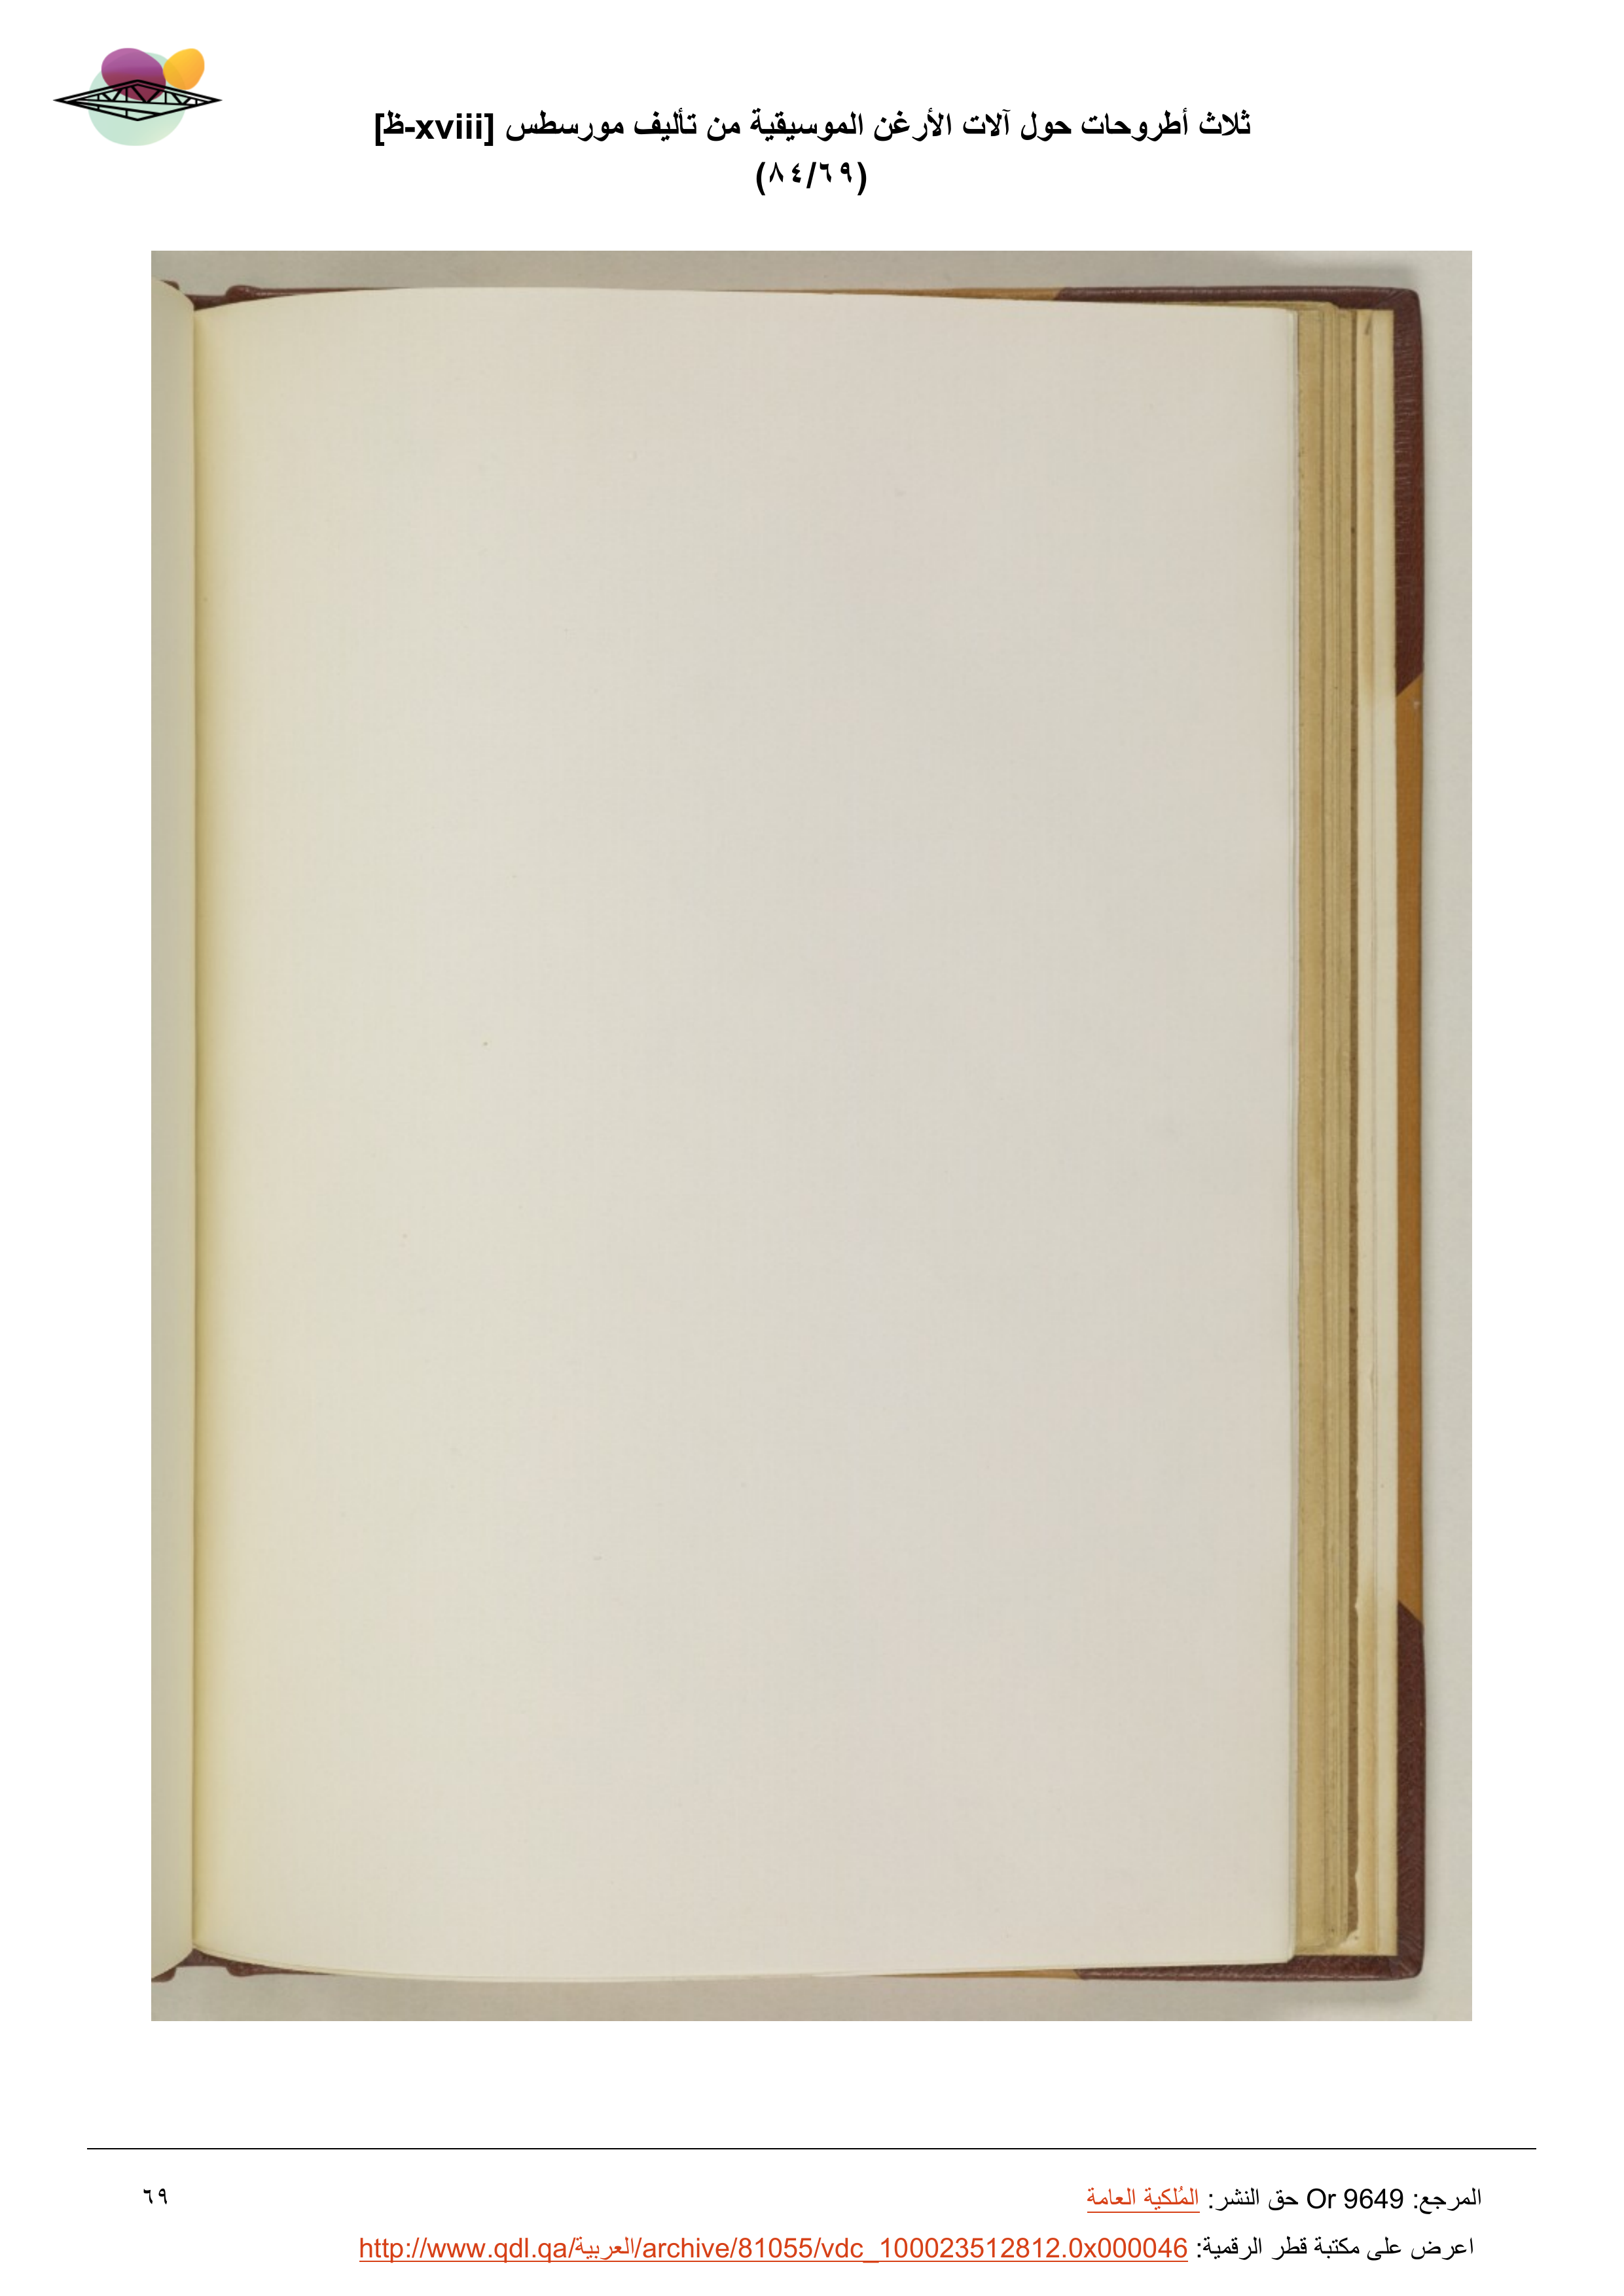 ثلاث أطروحات حول آلات الأرغن الموسيقية من تأليف مورسطس [xviii-ظ]
(٨٤/٦٩)
المرجع: Or 9649 حق النشر: المُلكية العامة
٦٩
اعرض على مكتبة قطر الرقمية: http://www.qdl.qa/العربية/archive/81055/vdc_100023512812.0x000046